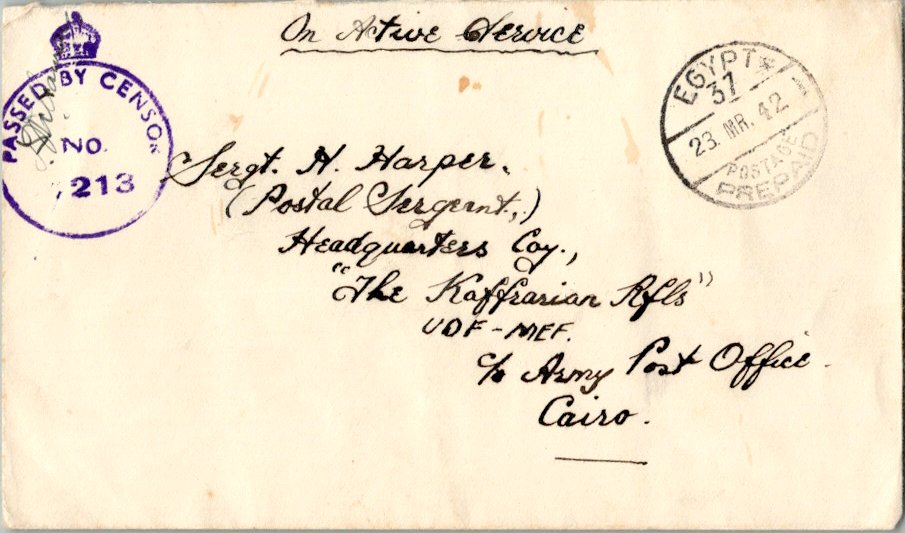 On Active Service
PASSED BY CENSOR
NO.
213
EGYPT
37
23 MR. 42
POSTAGE
PREPAID
Sergt. H. Harper.
(Postal Sergernt,,)
Headquarters Coy.,
"The Kaffrarian Rfls"
UDF - MEF.
c/o Army Post Office.
Cairo.